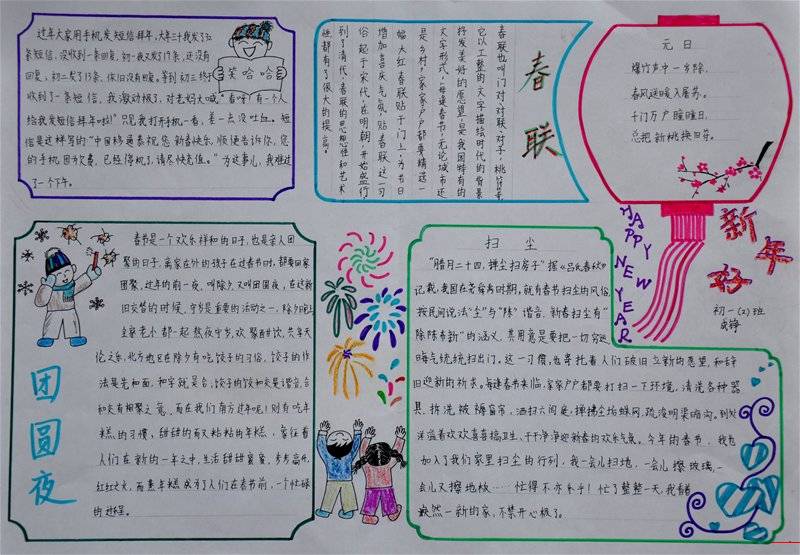 过年大家用手机发短信拜年，大年三十我发了32
条短信，没收到一条回复，初一我又发了19条，还没有
回复，初二发了13条，依旧没有回复。等到初三终于
收到了一条短信，我激动极了，对老妈大喊："看呀！有一个人
给我发短信拜年啦！"只见我打开手机一看，差一点没吐血。短
信是这样写的："中国移通恭祝您新春快乐，顺便告诉你，您
的手机因欠费，已经停机了，请尽快充值。"为这事儿，我难过
了一个下午。
笑哈哈
春联
春联也叫门对、对联、对子，桃符等，
它以工整的文字描绘时代的背景
抒发美好的愿望，是我国特有的
文字形式，每逢春节，无论城市还
是乡村，家家户户都要精选一
幅大红春联贴于门上，为节日
增加喜庆气氛，贴春联这一习
俗起于宋代，在明朝，开始盛行
到了清代，春联的思想性和艺术
性都有了很大的提高。
元日
爆竹声中一岁除，
春风送暖入屠苏。
千门万户曈曈日，
总把新桃换旧符。
HAPPY NEW YEAR
新年好
初一(2)班
团圆夜
春节是一个欢乐祥和的日子，也是亲人团
聚的日子，离家在外的孩子在过春节时，都要回家
团聚，过年的前一夜，叫除夕又叫团圆夜，在这新
旧交替的时候，守岁是重要的活动之一，除夕晚上
全家老小都一起熬夜守岁，欢聚酣饮，共享天
伦之乐，北方地区在除夕有吃饺子的习俗，饺子的作
法是先和面，和字就是合；饺子的饺和交是谐音，合
和交有相聚之意。而在我们南方过年呢！则有吃年
糕的习惯，甜甜的而又粘粘的年糕，象征着
人们在新的一年之中，生活甜甜蜜蜜，步步高升，
红红火火，而蒸年糕成了人们在春节前，一个忙碌
的过程。
扫尘
"腊月二十四，掸尘扫房子"据《吕氏春秋》
记载，我国在尧舜时期，就有春节扫尘的风俗，
按民间说法"尘"与"陈"谐音，新春扫尘有
"除陈布新"的涵义，其用意是要把一切穷运
晦气统统扫出门。这一习惯，寄托着人们破旧立新的愿望，和辞
旧迎新的祈求。每逢春节来临，家家户户都要打扫一下环境，清洗各种器
具，拆洗被褥窗帘，洒扫六闾庭，掸拂尘垢蛛网，疏浚明渠暗沟。到处
洋溢着欢欢喜喜搞卫生，干干净净迎新春的欢乐气氛。今年的春节，我也
加入了我们家里扫尘的行列，我一会儿扫地，一会儿擦玻璃，一
会儿又擦地板……忙得不亦乐乎！忙了整整一天，我看着
焕然一新的家，不禁开心极了。